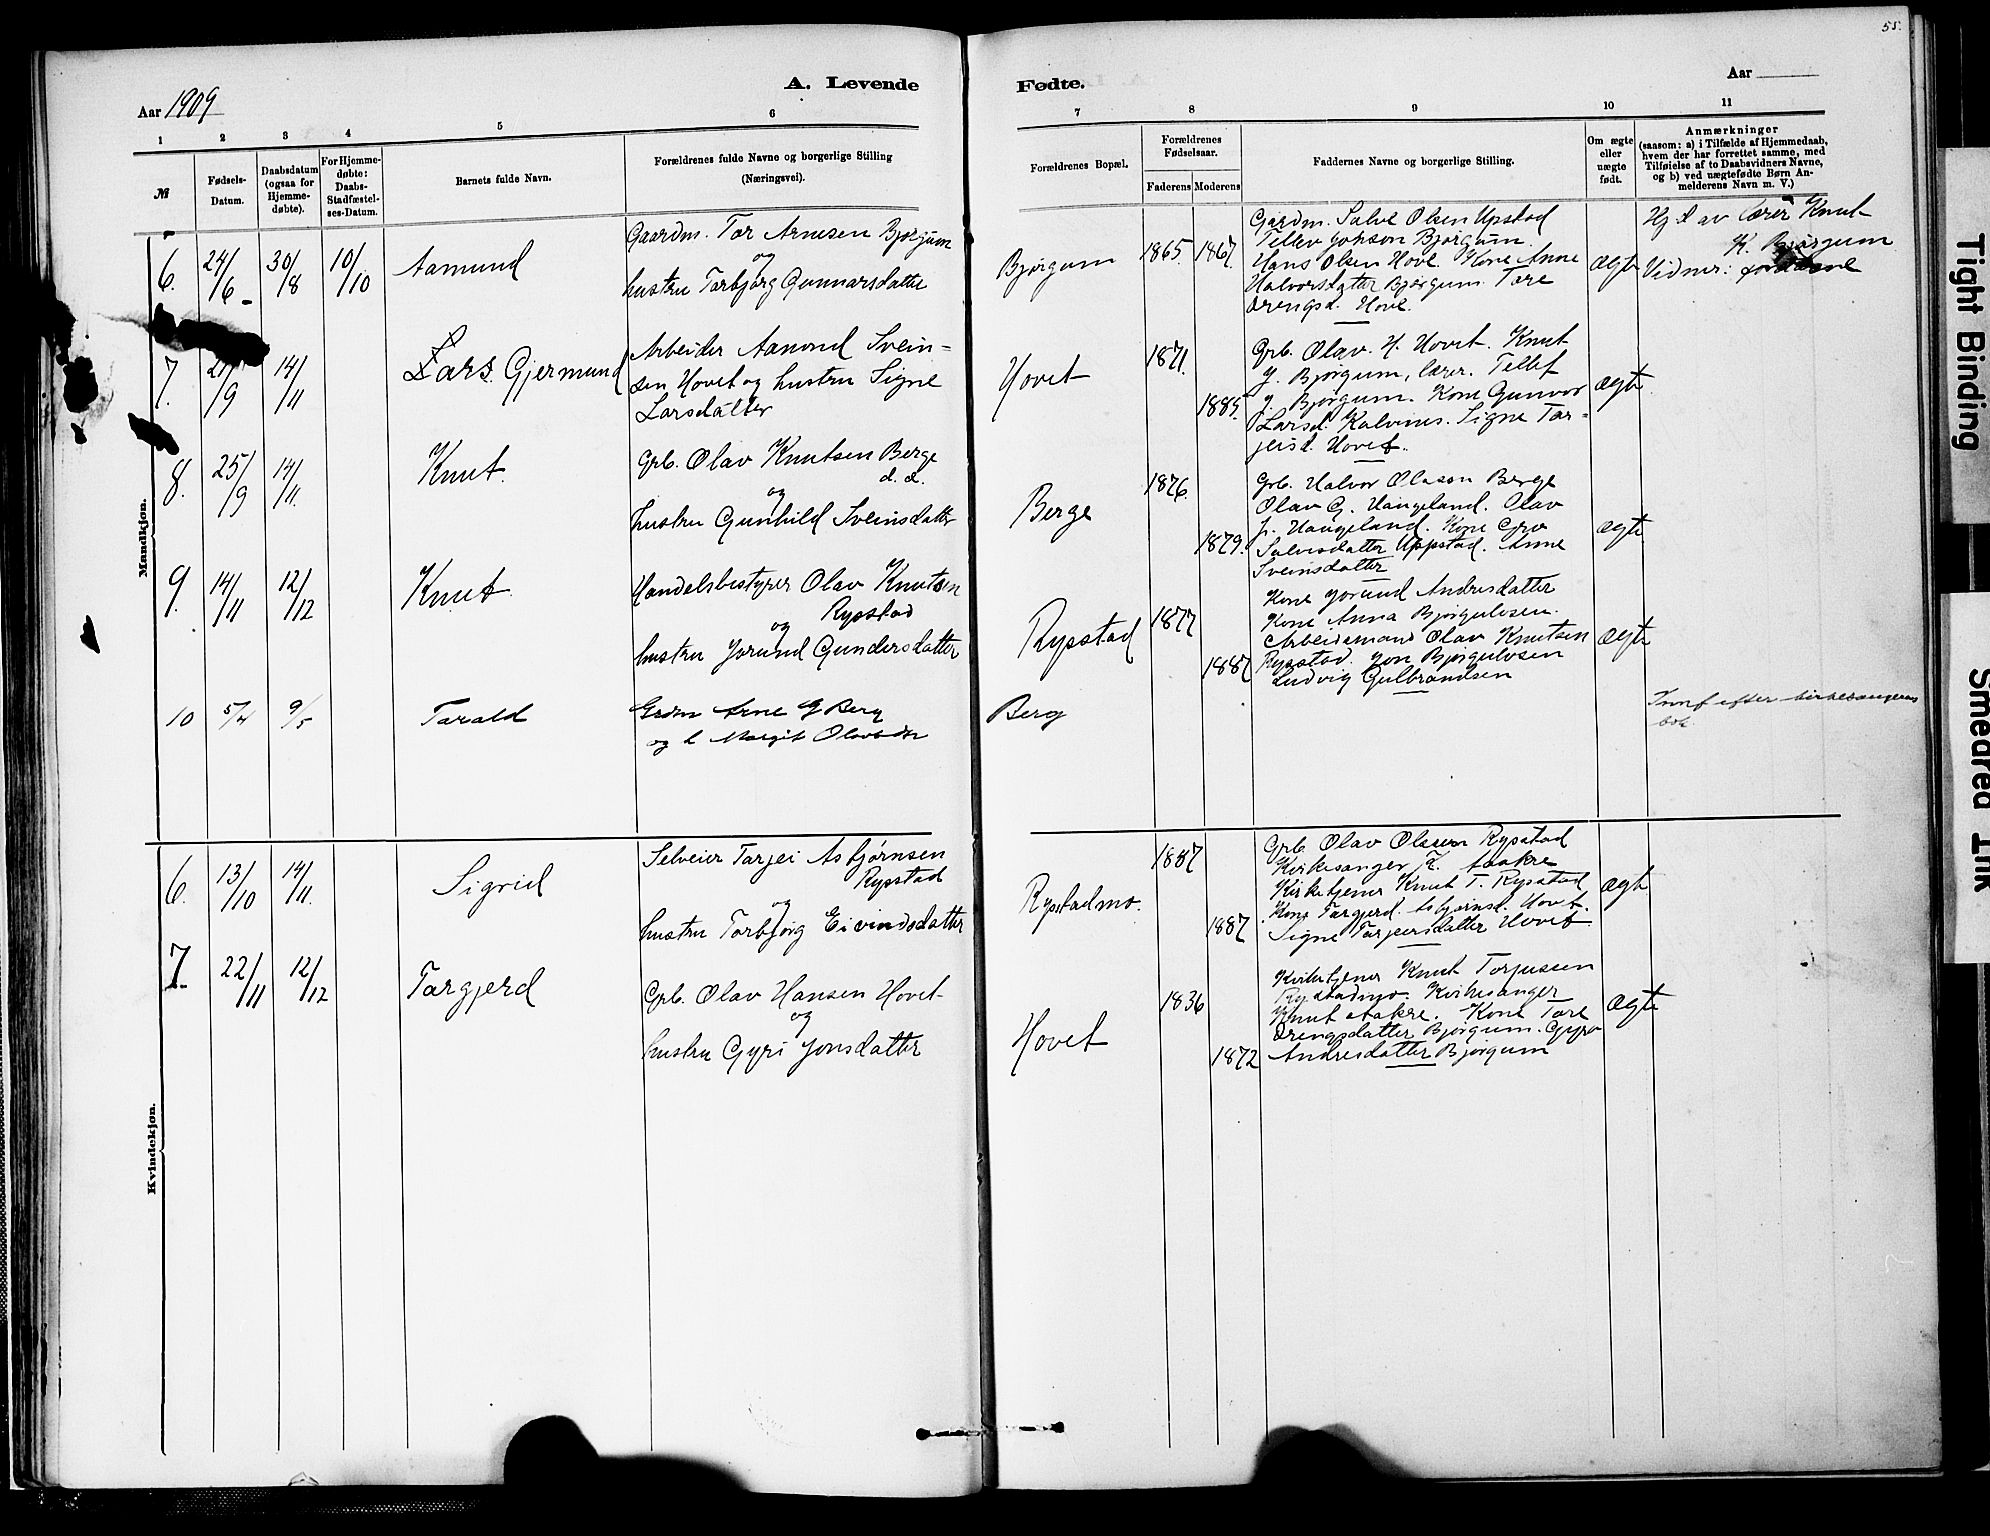 55.
A. Levende
Fødte.
Aar 1909
Aar
1 2 3 4 5 6 7 8 9 10 11
№
Fødsels-
Datum.
Daabsdatum
(ogsaa for
Hjemme-
døbte).
For Hjemme-
døbte:
Daabs-
Stadfæstel-
ses-Datum.
Barnets fulde Navn.
Forældrenes fulde Navne og borgerlige Stilling
(Næringsvei).
Forældrenes Bopæl.
Forældrenes
Fødselsaar.
Faderens
Moderens
Faddernes Navne og borgerlige Stilling.
Om ægte
eller
uægte
født.
Anmærkninger
(saasom: a) i Tilfælde af Hjemmedaab,
hvem der har forrettet samme, med
Tilføielse af to Daabsvidners Navne,
og b) ved uægtefødte Børn An-
melderens Navn m. V.)
Mandkjøn.
6. 24/6 30/8 10/10 Aamund
Gaardm. Tor Arnesen Bjørgum
og
hustru Torbjørg Gunnarsdatter
Bjørgum 1865. 1867.
Gaardm. Salve Olsen Upstad
Tellev Johson Bjørgum.
Hans Olsen Hove. Kone Anne
Halvorsdatter Bjørgum. Tore
Drengsd. Hove.
ægte
Hj. d av lærer Knut
K. Bjørgum
Vidner:
7. 14/11 Lars Gjermund
Arbeider Aamund Svein-
sen Hovet og hustru Signe
Larsdatter
Hovet 1871. 1885.
Grb. Olav. H. Hovet. Knut
G. Bjørgum, lærer. Tellef
G. Bjørgum. Kone Gunvor
Larsd. Kalvenes. Signe Tar-
jeisd. Hovet.
ægte
8. 25/9 14/11. Knut.
Grb. Olav Knutsen Berge
d. d.
og
hustru Gunhild Sveinsdatter
Berge 1876. 1879.
Grb. Halvor Olason Berge
Olav G. Haugeland. Olav
J. Haugeland. Kone Gro
Salvesdatter Uppstad. Anne
Sveinsdatter
ægte
9. 14/11 12/12 Knut.
Handelsbestyrer Olav Knutsen
Rysstad
og
hustru Jorund Gundersdatter
Rysstad 1877 1887
Kone Jorund Andresdatter
Kone Anna Bjørgulvsen.
Arbeidsmand Olav Knutsen
Rysstad. Jon Bjørgulvsen
Ludvig Gulbrandsen
ægte
10 5/4 9/5 Tarald
Grdm Arne G Berg
og h Margit Olavsdtr
Berg
Innf efter kirkesangerens
bok
Kvindekjøn.
6. 13/10 14/11. Sigrid
Selveier Tarjei Asbjørnsen
Rysstad
og
hustru Torbjørg Eivindsdatter
Rysstadmo. 1887 1887
Grb. Olav Olssen Rysstad
Kirkesanger K. Aakre
Kirketjener Knut T. Rysstad
Kone Targjerd Asbjørnsd. Hovet.
Signe Tarjeisdatter Hovet
ægte
7. 22/11 12/12 Targjerd
Grb. Olav Hansen Hovet
og
hustru Gyri Jonsdatter
Hovet 1836 1872
Kirketjener Knut Torjussen
Rysstadmo. Kirkesanger
Knut Aakre. Kone Tore
Drengsdatter Bjørgum. Gyro
Andresdatter Bjørgum
ægte
Tight Binding
Smeared Ink